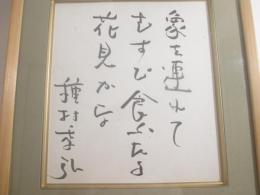 象も連れて
むすび食ふなる
花見かな
種村季弘